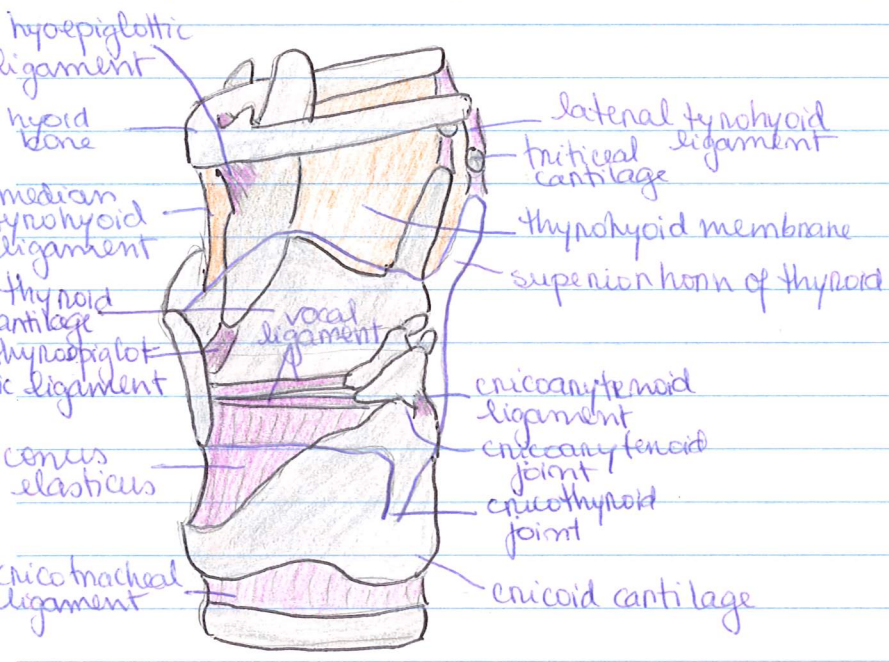 hyoepiglottic
ligament
hyoid
bone
median
tyrohyoid
ligament
thyroid
cartilage
thyroepiglot-
ic ligament
conus
elasticus
cricotracheal
ligament
vocal
ligament
lateral tyrohyoid
ligament
triticeal
cartilage
thyrohyoid membrane
superior horn of thyroid
cricoarytenoid
ligament
cricoarytenoid
joint
cricothyroid
joint
cricoid cartilage